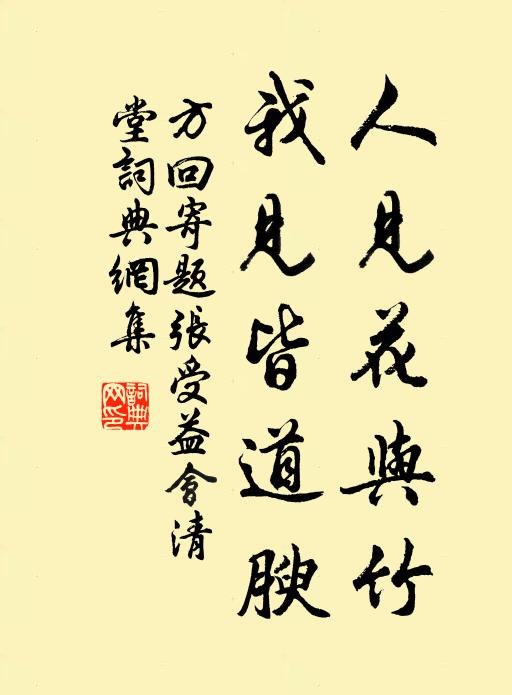 人見花與竹
我見皆道腴
方回寄題張受益會清
堂詞典網集
詞典
網印